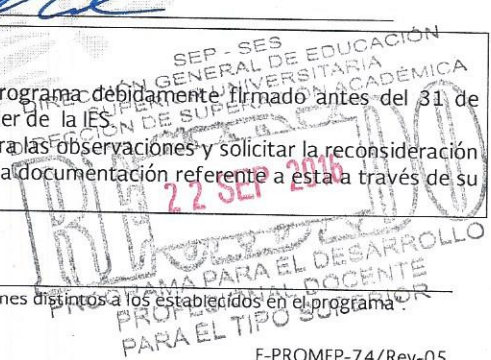 SEP - SES
DIRECCIÓN GENERAL DE EDUCACIÓN
SUPERIOR UNIVERSITARIA
DIRECCIÓN DE SUPERACIÓN ACADÉMICA
rograma debidamente firmado antes del 31 de
er de la IES.
ra las observaciones y solicitar la reconsideración
a documentación referente a ésta a través de su
22 SEP 2016
PROGRAMA PARA EL DESARROLLO
PROFESIONAL DOCENTE
PARA EL TIPO SUPERIOR
nes distintos a los establecidos en el programa".
F-PROMEP-74/Rev-05